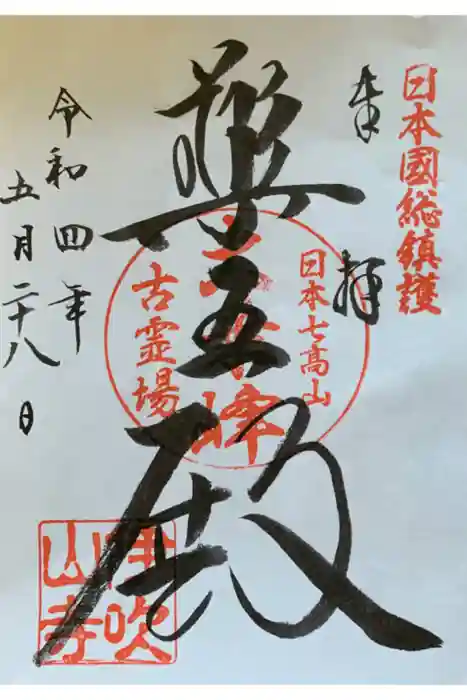 日本國総鎮護
奉拝
日本七高山
薬王殿
古霊場
伊吹山寺
令和四年
五月二十八日